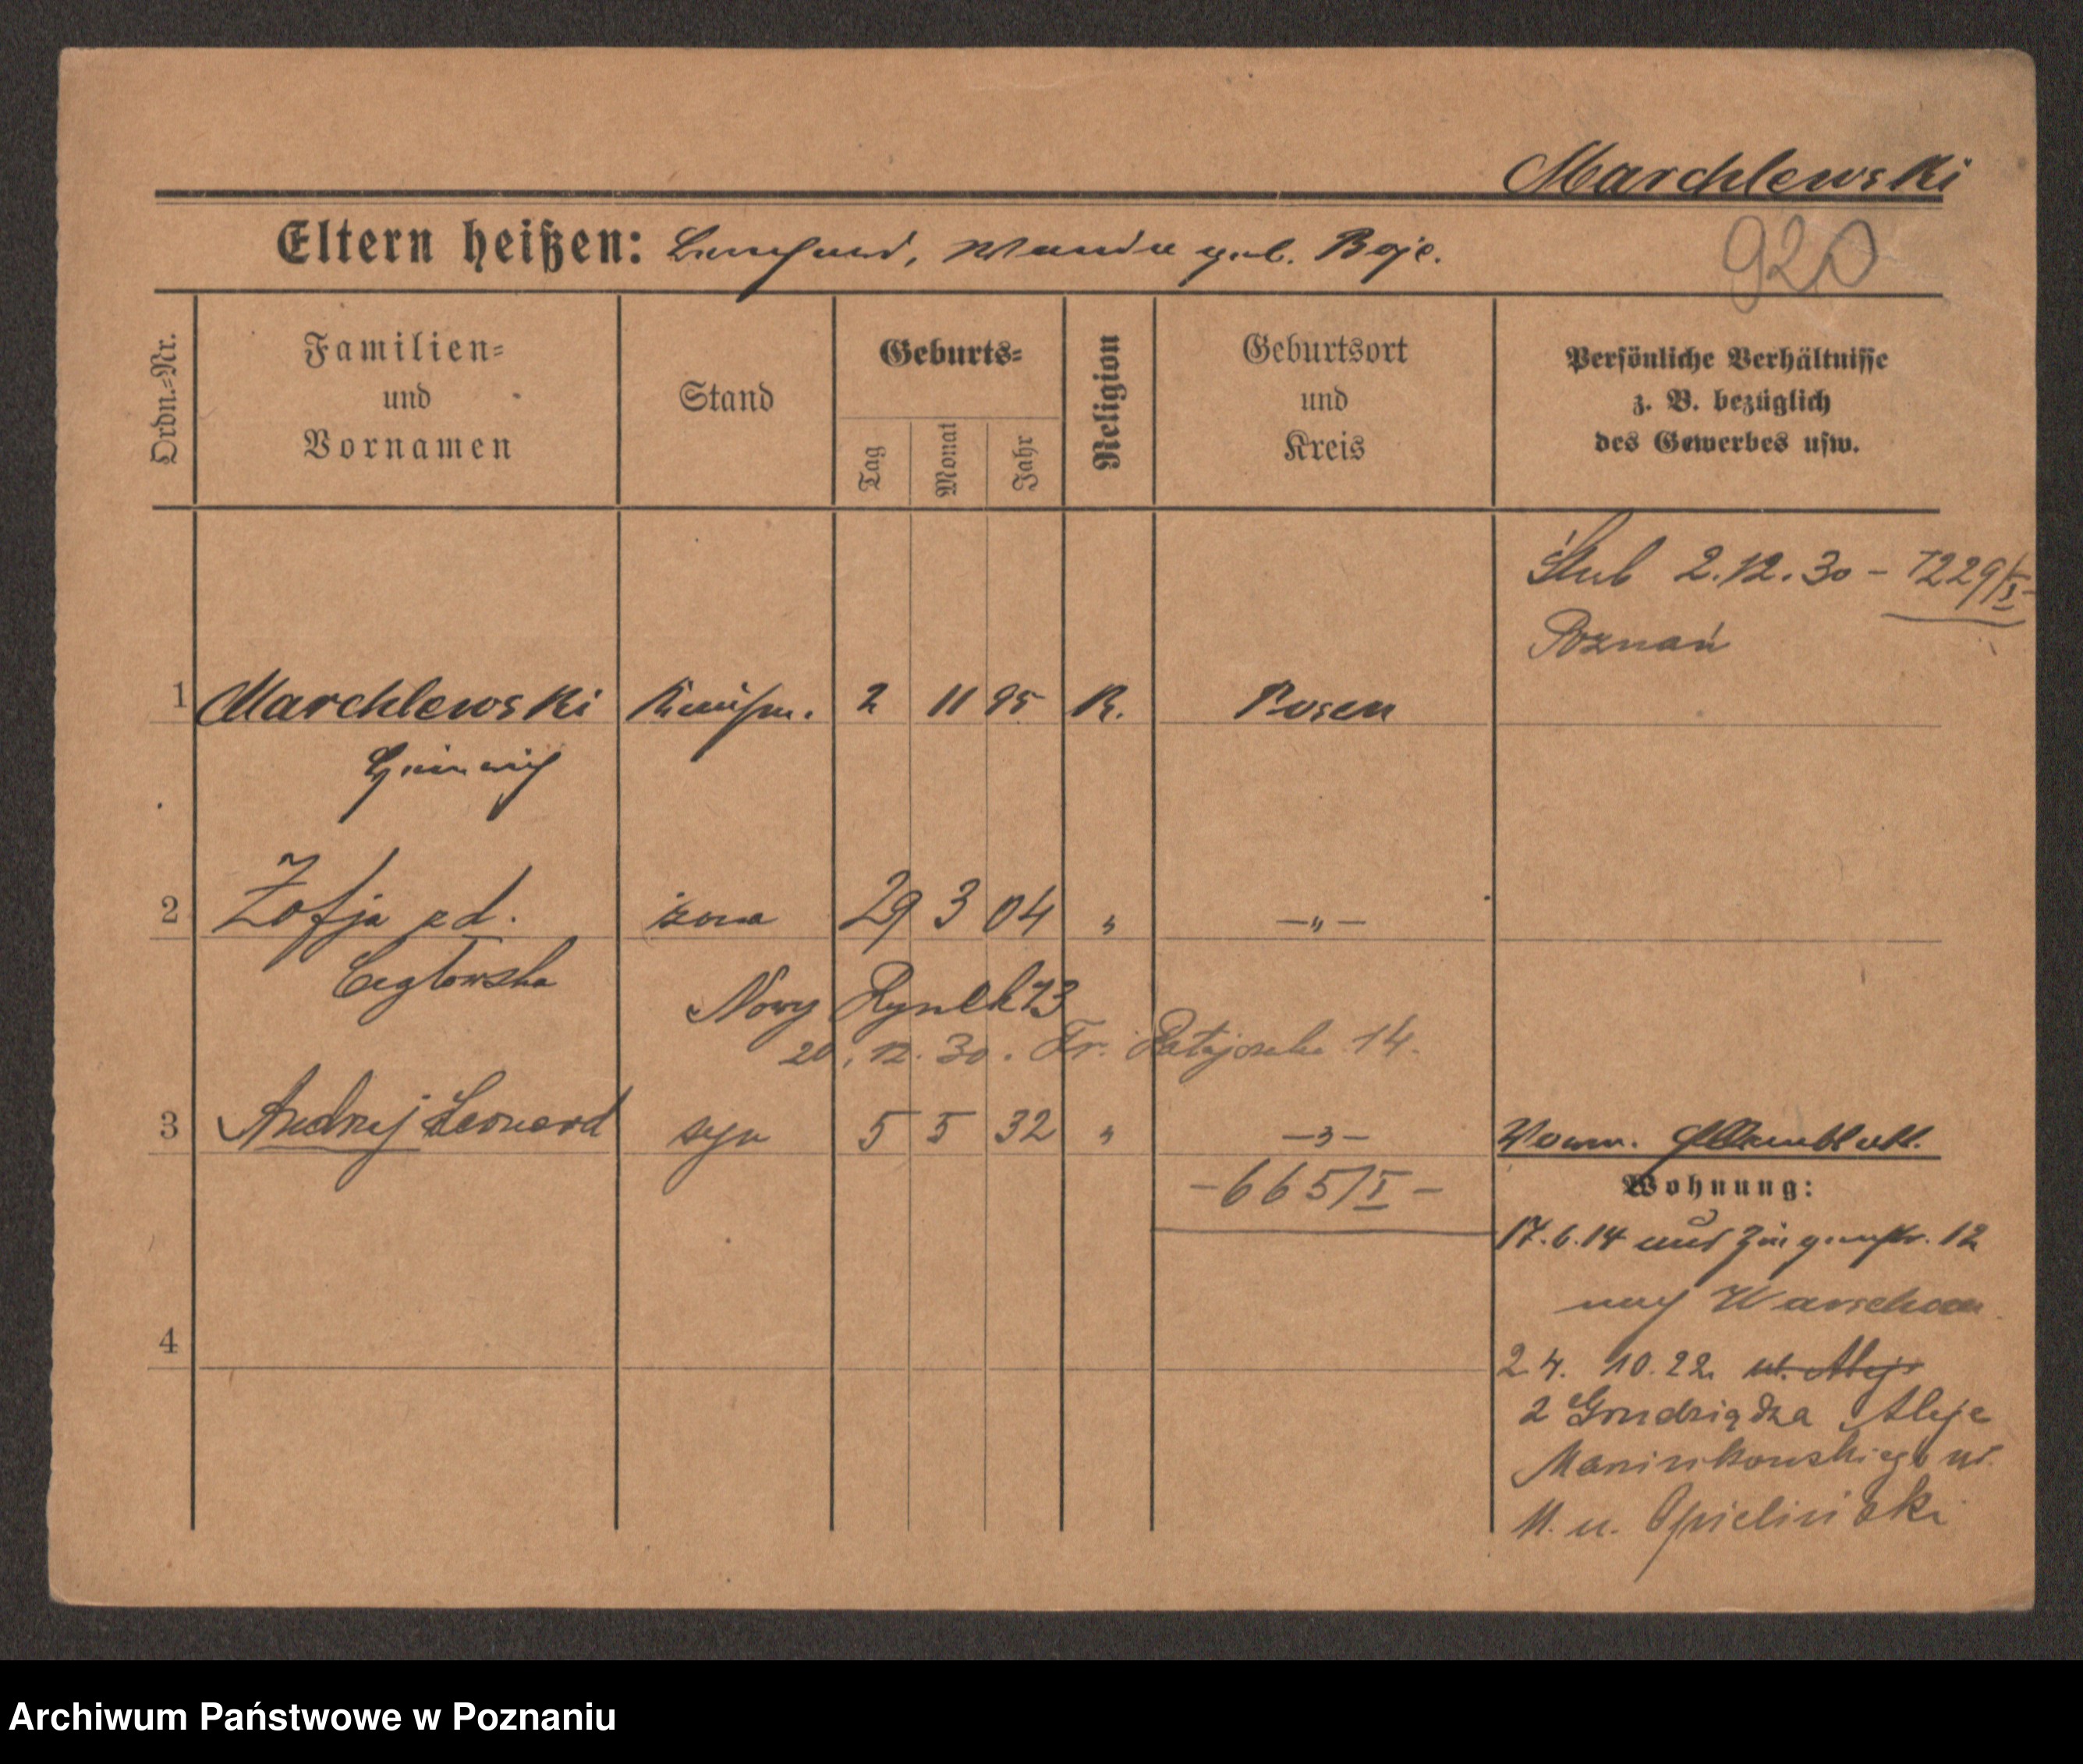 Marchlewski
920
Eltern heißen: Bernhard, Wanda geb. Boje.
Ordn.=Nr.
Familien= und Vornamen
Stand
Geburts=
Tag
Monat
Jahr
Religion
Geburtsort und Kreis
Persönliche Verhältnisse z. B. bezüglich des Gewerbes usw.
Ślub 2.12.30 – 7229/I
Poznań
1 Marchlewski Kaufm. 2 11 95 K. Posen
Heinrich
2 Zofja zd. żona 29 3 04 " —"—
Nowy Rynek 13
20.12.30. Fr. Ratajczaka 14.
3 Andrzej Leonard syn 5 5 32 " —"—
Vorm. Stammblatt.
–665/I–
Wohnung:
17.6.14 aus 12
nach Warschau
24. 10.22. ul. Aleje
z Grudziądza Aleje
Marcinkowskiego nr.
11. u. Opielinski
4
Archiwum Państwowe w Poznaniu